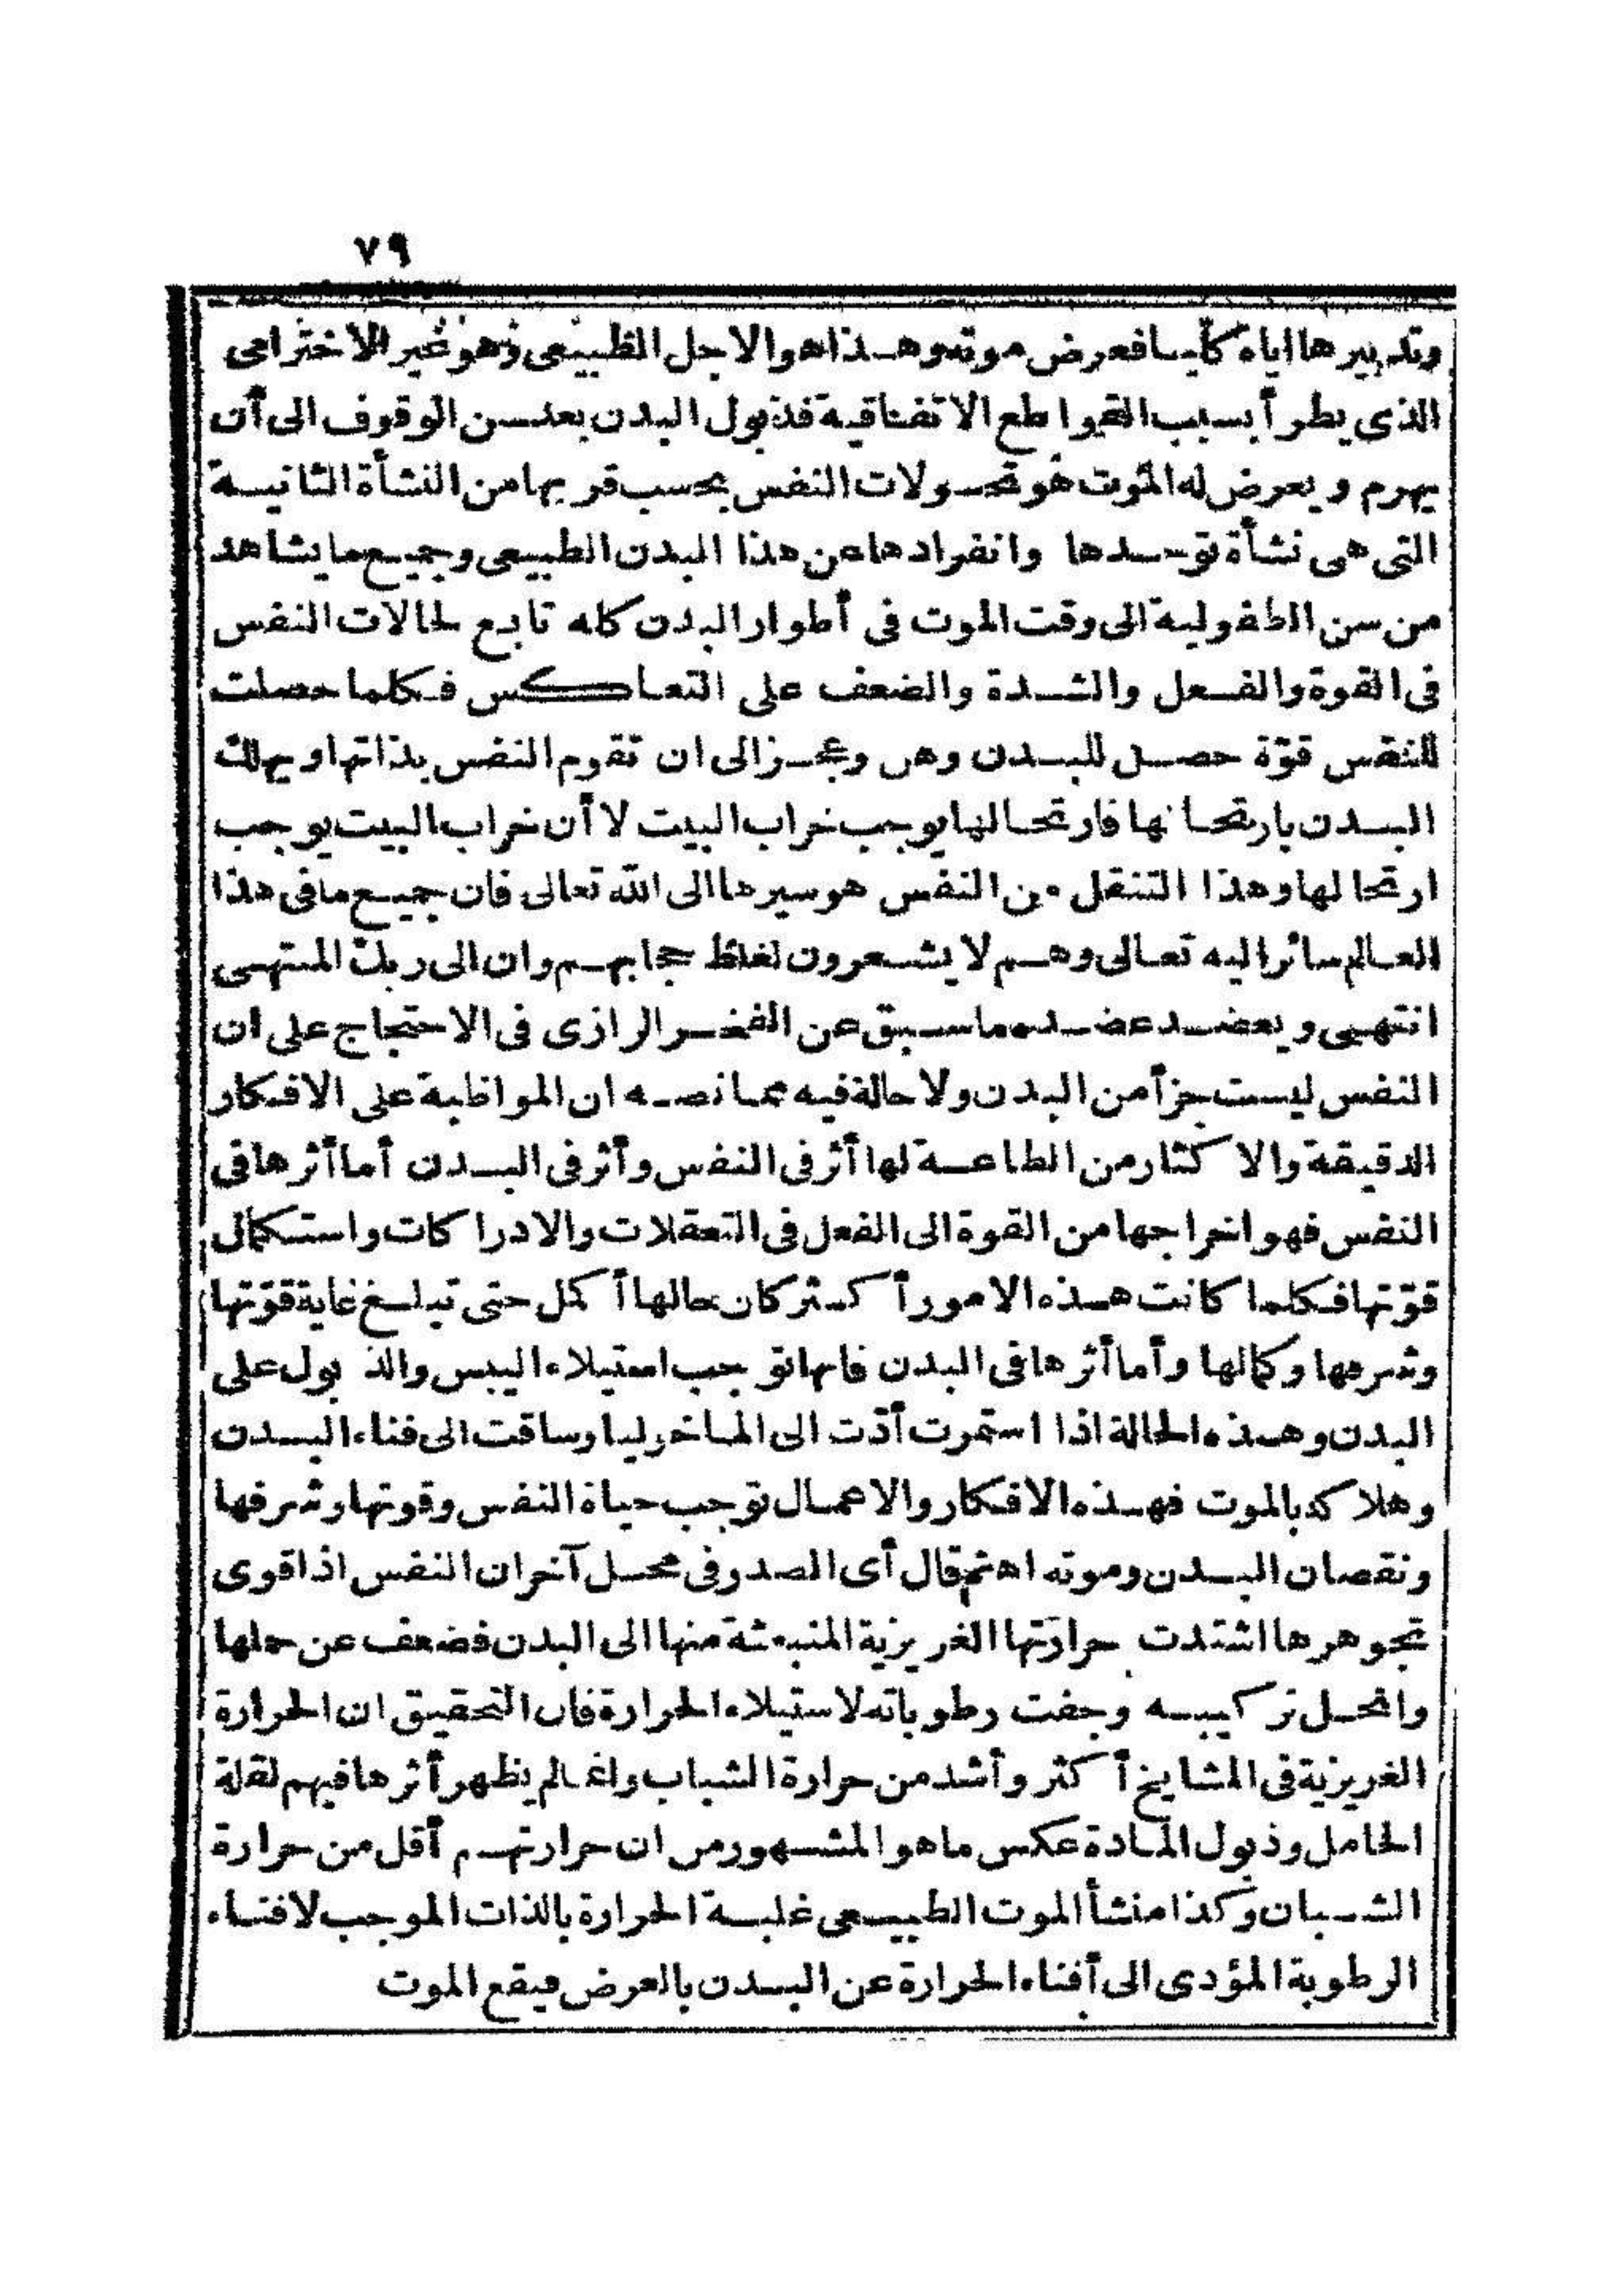 ٧٩
وتدبيرها اياه كليا فعرض موته وهذا هو الاجل الطبيعى وهو غير الاخترامى
الذى يطرأ بسبب القواطع الاتفاقية فذبول البدن بعد سن الوقوف الى أن
يهرم ويعرض له الموت هو تحولات النفس بحسب قربها من النشأة الثانية
التى هى نشأة توحدها وانفرادها عن هذا البدن الطبيعى وجميع ما يشاهد
من سن الطفولية الى وقت الموت فى أطوار البدن كله تابع لحالات النفس
فى القوة والفعل والشدة والضعف على التعاكس فكلما حصلت
للنفس قوّة حصل للبدن وهن وعجز الى ان تقوم النفس بذاتها ويهلك
البدن بارتحالها فارتحالها يوجب خراب البيت لا أن خراب البيت يوجب
ارتحالها وهذا التنقل من النفس هو سيرها الى الله تعالى فان جميع ما فى هذا
العالم سائر اليه تعالى وهم لا يشعرون لغلظ حجابهم وان الى ربك المنتهى
انتهى ويعضد عضده ما سبق عن الفخر الرازى فى الاحتجاج على ان
النفس ليست جزأ من البدن ولا حالة فيه مما نصه ان المواظبة على الافكار
الدقيقة والاكثار من الطاعة لها أثر فى النفس وأثر فى البدن أما أثرها فى
النفس فهو اخراجها من القوة الى الفعل فى التعقلات والادراكات واستكمال
قوّتها فكلما كانت هذه الامور أكثر كان حالها أكمل حتى تبلغ غاية قوّتها
وشرفها وكمالها وأما أثرها فى البدن فانها توجب استيلاء اليبس والذبول على
البدن وهذه الحالة اذا استمرت أدّت الى الماخوليا وساقت الى فناء البدن
وهلاكه بالموت فهذه الافكار والاعمال توجب حياة النفس وقوتها وشرفها
ونقصان البدن وموته اه ثم قال أى الصدر فى محل آخر ان النفس اذا قوى
تجوهرها اشتدت حرارتها الغريزية المنبعثة منها الى البدن فضعف عن حملها
وانحل تركيبه وجفت رطوباته لاستيلاء الحرارة فان التحقيق ان الحرارة
الغريزية فى المشايخ أكثر وأشد من حرارة الشباب وانما لم يظهر أثرها فيهم لقلة
الحامل وذبول المادة عكس ما هو المشهور من ان حرارتهم أقل من حرارة
الشبان وكذا منشأ الموت الطبيعى غلبة الحرارة بالذات الموجب لافناء
الرطوبة المؤدى الى أفناء الحرارة عن البدن بالعرض فيقع الموت